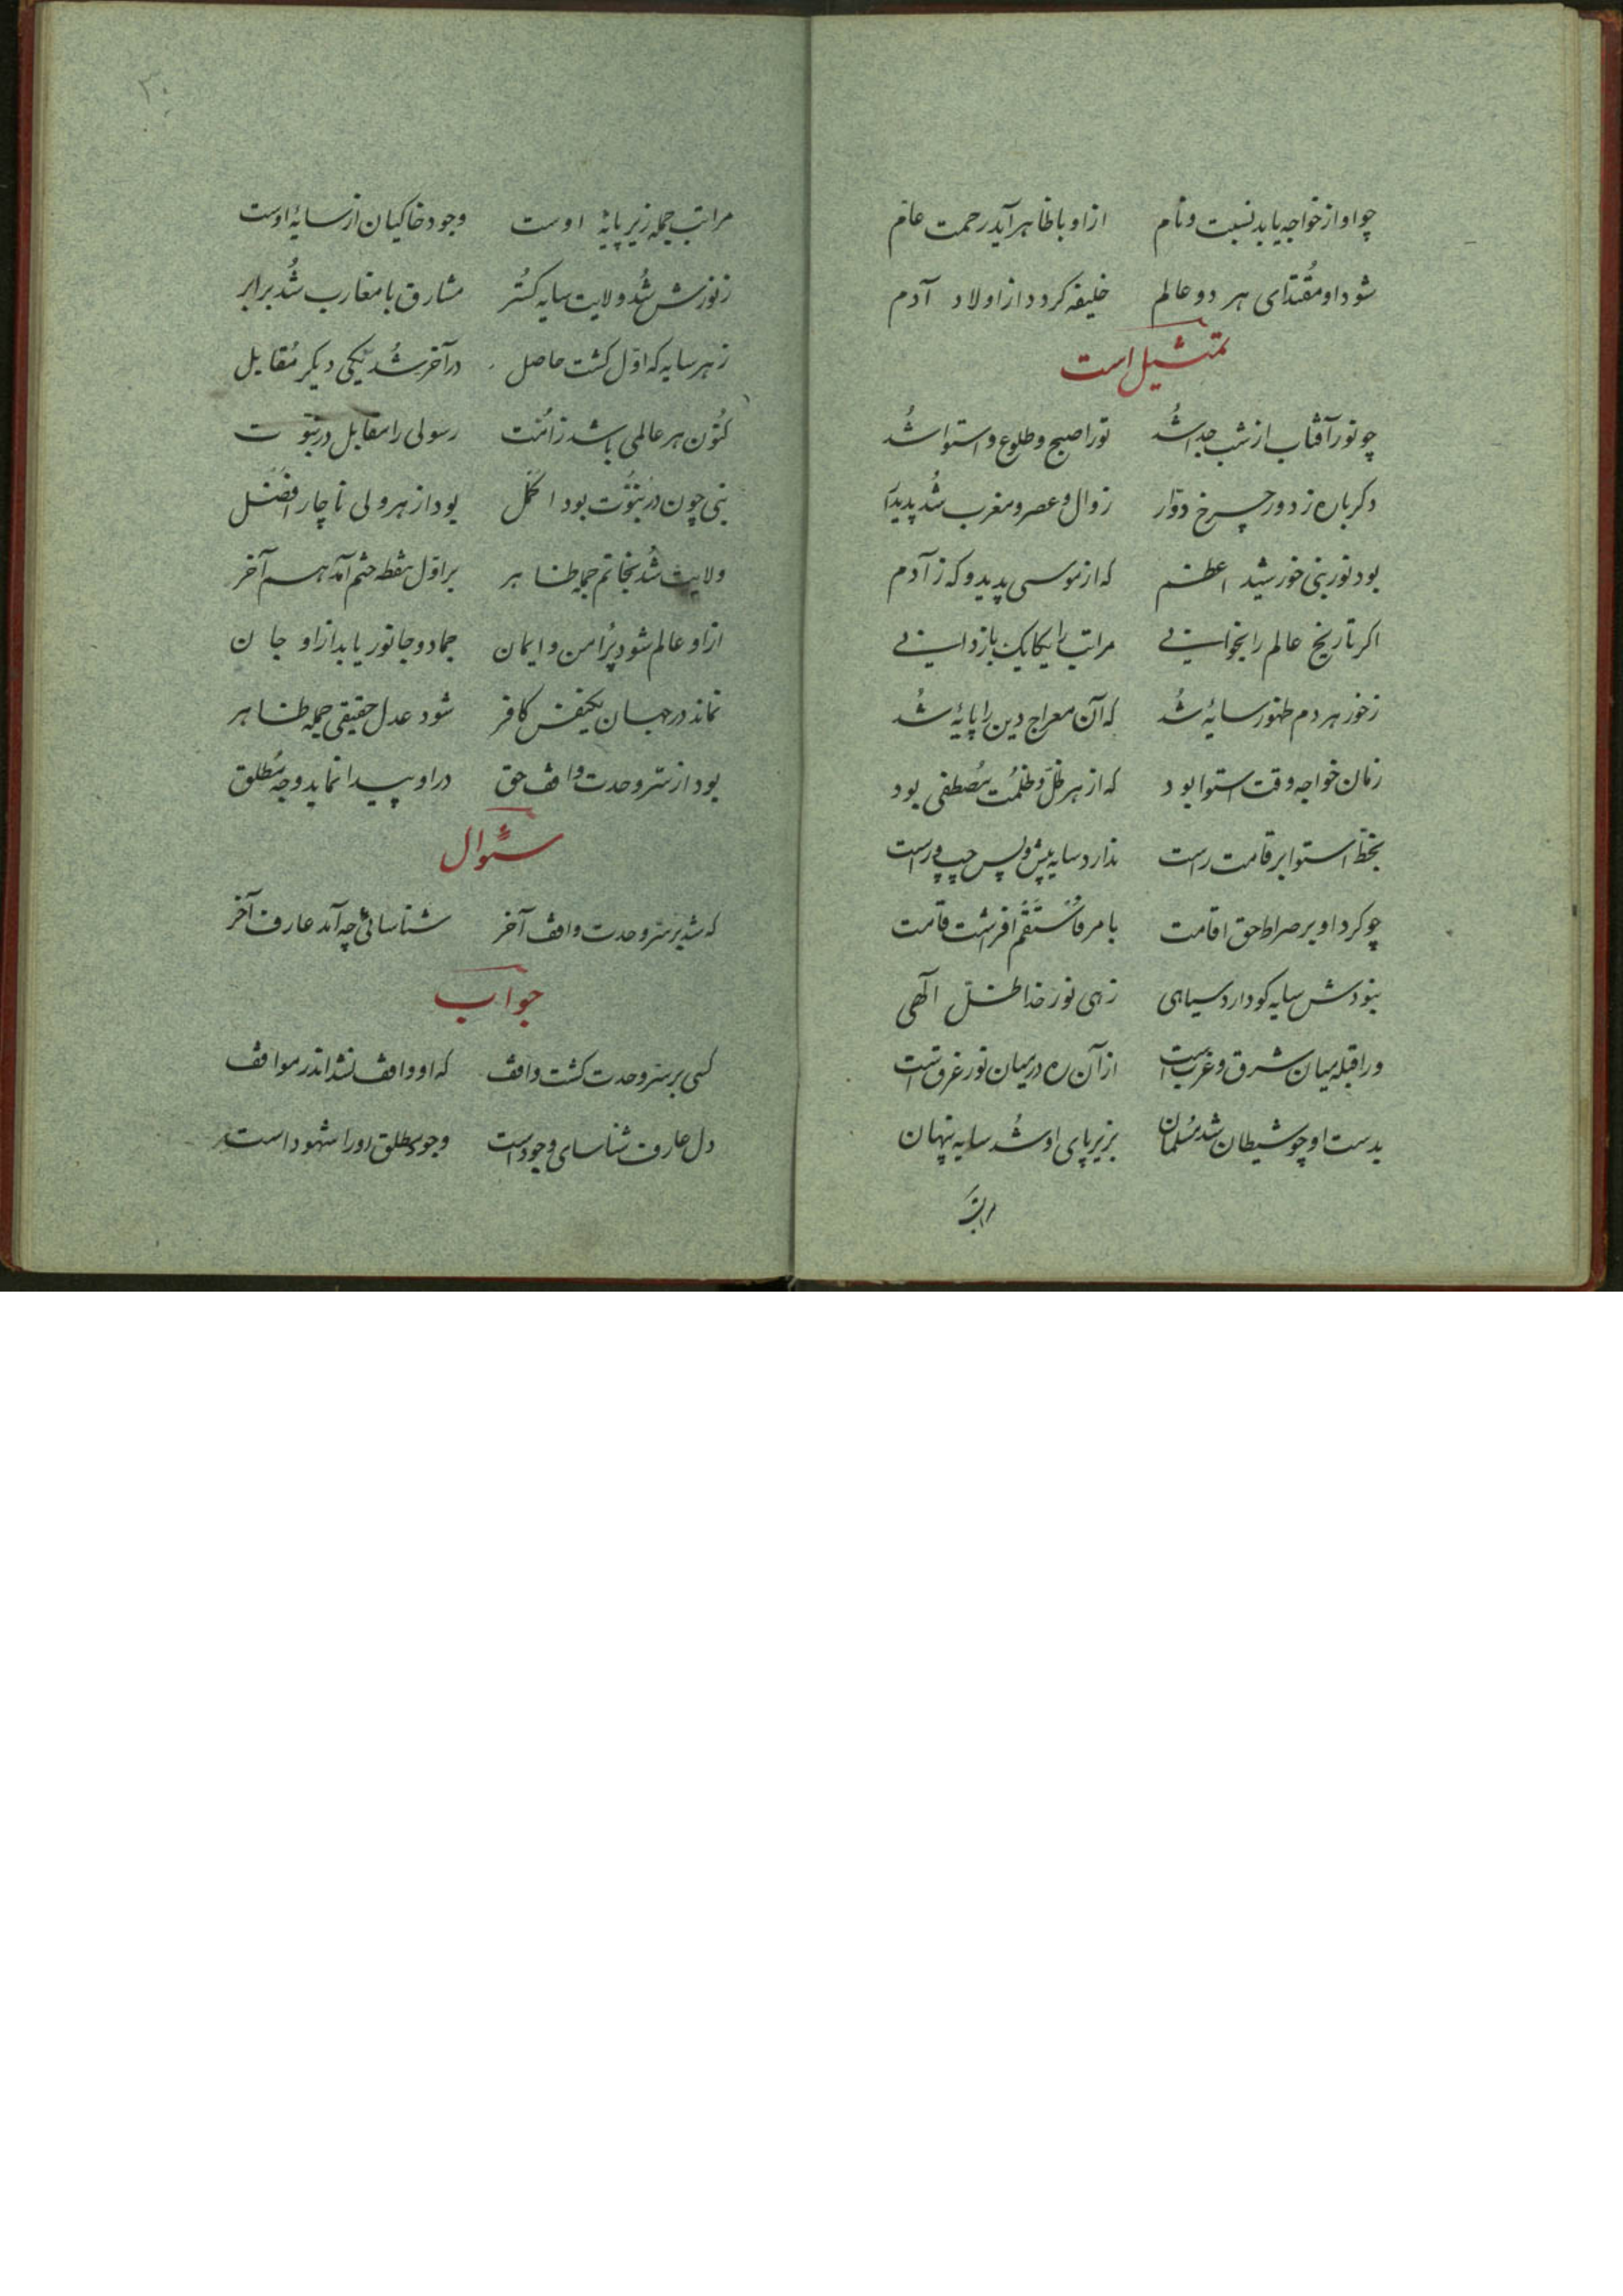 چو او از خواجه یابد نسبت و نام ازاو با ظاهر آید رحمت عام
شود او مقتدای هر دو عالم خلیفه کردد از اولاد آدم
تمثیل است
چو نور آفتاب از شب جدا شد تورا صبح و طلوع و استوا شد
دکرباره ز دور چرخ دوّار زوال و عصر و مغرب شد پدیدار
بود نور نبی خورشید اعظم که از موسی پدید و که ز آدم
اکر تاریخ عالم را بخوانی مراتب را یکایک باز دانی
ز خور هر دم ظهور سایهٔ شد که آن معراج دین را پایهٔ شد
زمان خواجه وقت استوا بود که از هر ظلّ و ظلمت مُصطفی بود
بخطّ استوا بر قامت راست ندارد سایه پیش و پس چپ و راست
چو کرد او بر صراط حق اقامت با مر فَاستَقم افرشت قامت
نبودش سایه کو دارد سیاهی زهی نور خدا ظلّ الهی
ورا قبله میان شرق و غرب است از آن ره در میان نور غرق است
بدست او چو شیطان شد مُسلمان بزیر پای او شد سایه پنهان
مراتب
مراتب جمله زیر پایهٔ اوست وجود خاکیان از سایهٔ اوست
ز نورش شُد ولایت سایه کستُر مشارق با مغارب شُد برابر
ز هر سایه که اوّل کشت حاصل در آخر شُد یکی دیکر مُقابل
کنُون هر عالمی باشد ز امُت رسولی را مقابل در نبوّت
نبی چون در نبُوّت بود اکمَل بود از هر ولی ناچار افضَل
ولایت شُد بخاتم جمله ظاهر بر اوّل نقطه ختم آمد هم آخر
ازاو عالم شود پُر امن و ایمان جماد و جانور یابد ازاو جان
نماند در جهان یکنفس کافر شود عدل حقیقی جمله ظاهر
بود از سّر وحدت واقف حق دراو پیدا نماید وجه مُطلق
سئوال
که شد بر سّر وحدت واقف آخر شناسائی چه آمد عارف آخر
جواب
کسی بر سّر وحدت کشت واقف که او واقف نشد اندر مواقف
دل عارف شناسای وجود است وجود مطلق اورا شهود است